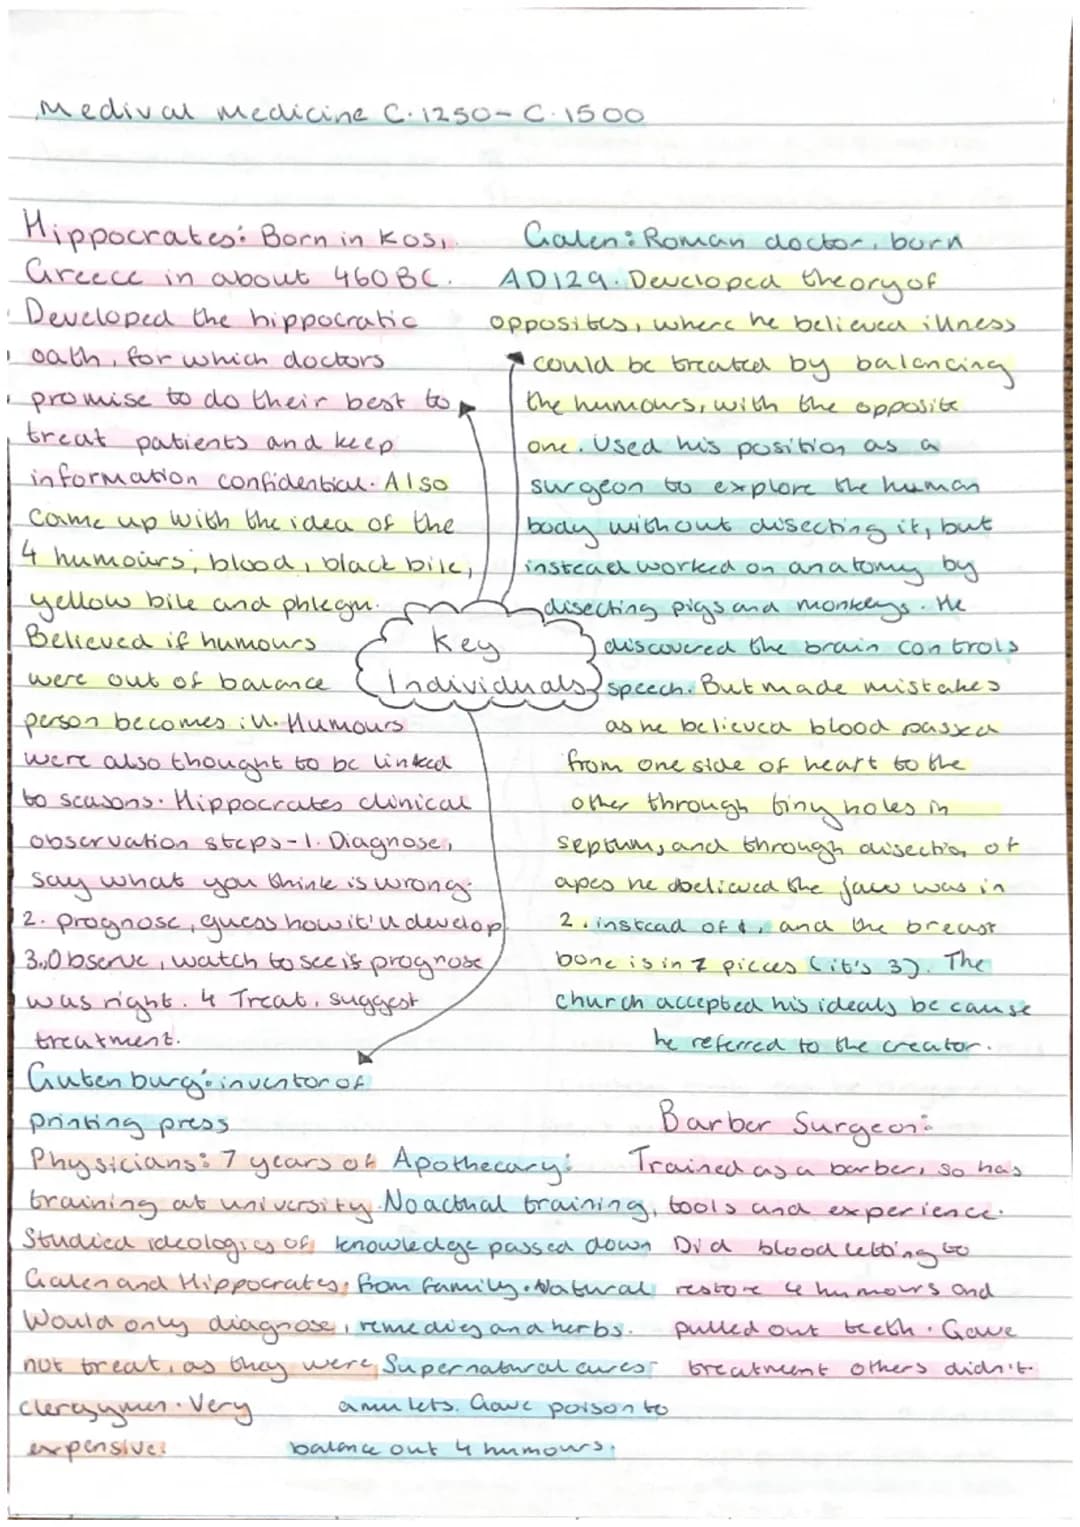 Medival Medicine C.1250-C.1500
Hippocrates: Born in Kos,
Greece in about 460BC.
Developed the hippocratic
oath, for which doctors
promise to do their best to
treat patients and keep
information confidential. Also
came up with the idea of the
4 humours; blood, black bile,
yellow bile and phlegm.
Believed if humours
were out of balance
person becomes ill. Humours
were also thought to be linked
to seasons. Hippocrates clinical
observation steps-1. Diagnose,
say what you think is wrong.
2. prognose, guess how it'll develop
3. Observe, watch to see if prognose
was right. 4 Treat, suggest
treatment.
Galen: Roman doctor, born
AD129. Developed theory of
opposites, where he believed illness
could be treated by balancing
the humours, with the opposite
one. Used his position as a
surgeon to explore the human
body without disecting it, but
instead worked on anatomy by
disecting pigs and monkeys. He
discovered the brain controls
speech. But made mistakes
as he believed blood passed
from one side of heart to the
other through tiny holes in
septum, and through disection of
apes he believed the jaw was in
2. instead of 1, and the breast
bone is in 7 pieces (it's 3). The
church accepted his ideals because
he referred to the creator.
Key
Individuals
Gutenburg: inventor of
printing press
Physicians: 7 years of
training at university.
Studied ideologies of
Galen and Hippocrates.
Would only diagnose,
not treat, as they were
clergymen. Very
expensive!
Apothecary:
No actual training,
knowledge passed down
from family. Natural
remedies and herbs.
Supernatural cures-
amulets. Gave poison to
balance out 4 humours.
Barber Surgeon:
Trained as a barber, so has
tools and experience.
Did blood letting to
restore 4 humours and
pulled out teeth. Gave
treatment others didn't.